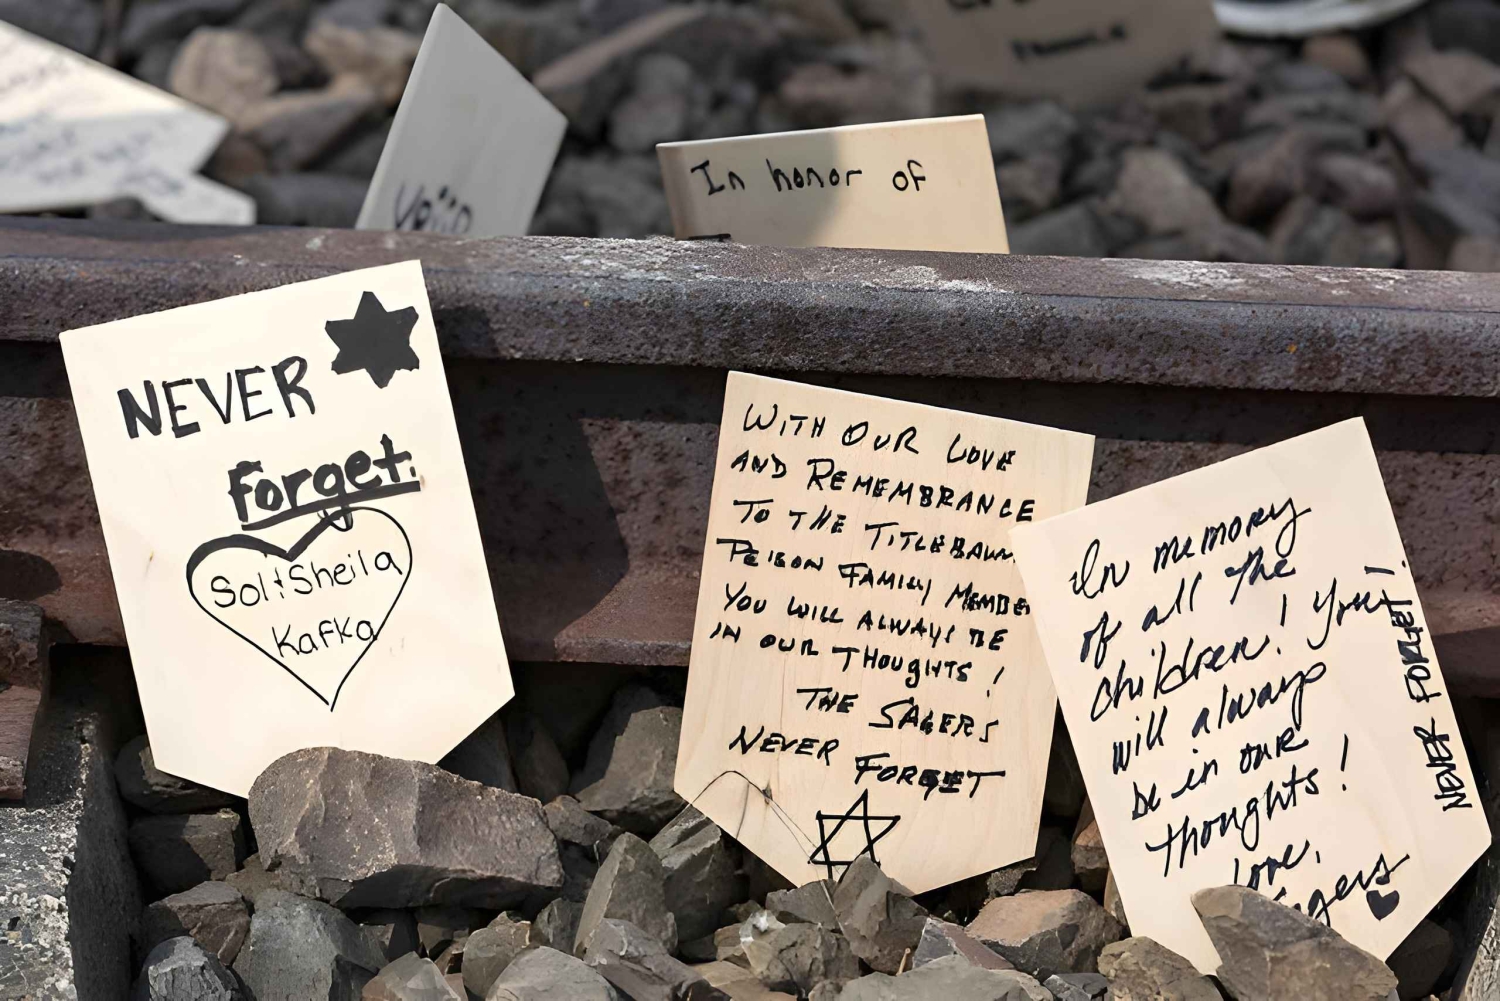 In honor of
NEVER
Forget.
Sol & Sheila
Kafka
WITH OUR LOVE
AND REMEMBRANCE
TO THE
FAMILY
YOU WILL ALWAYS BE
IN OUR THOUGHTS!
THE SAGERS
NEVER FORGET
In memory
of all the
children! You
will always
be in our
thoughts!
Love,
NEVER FORGET!